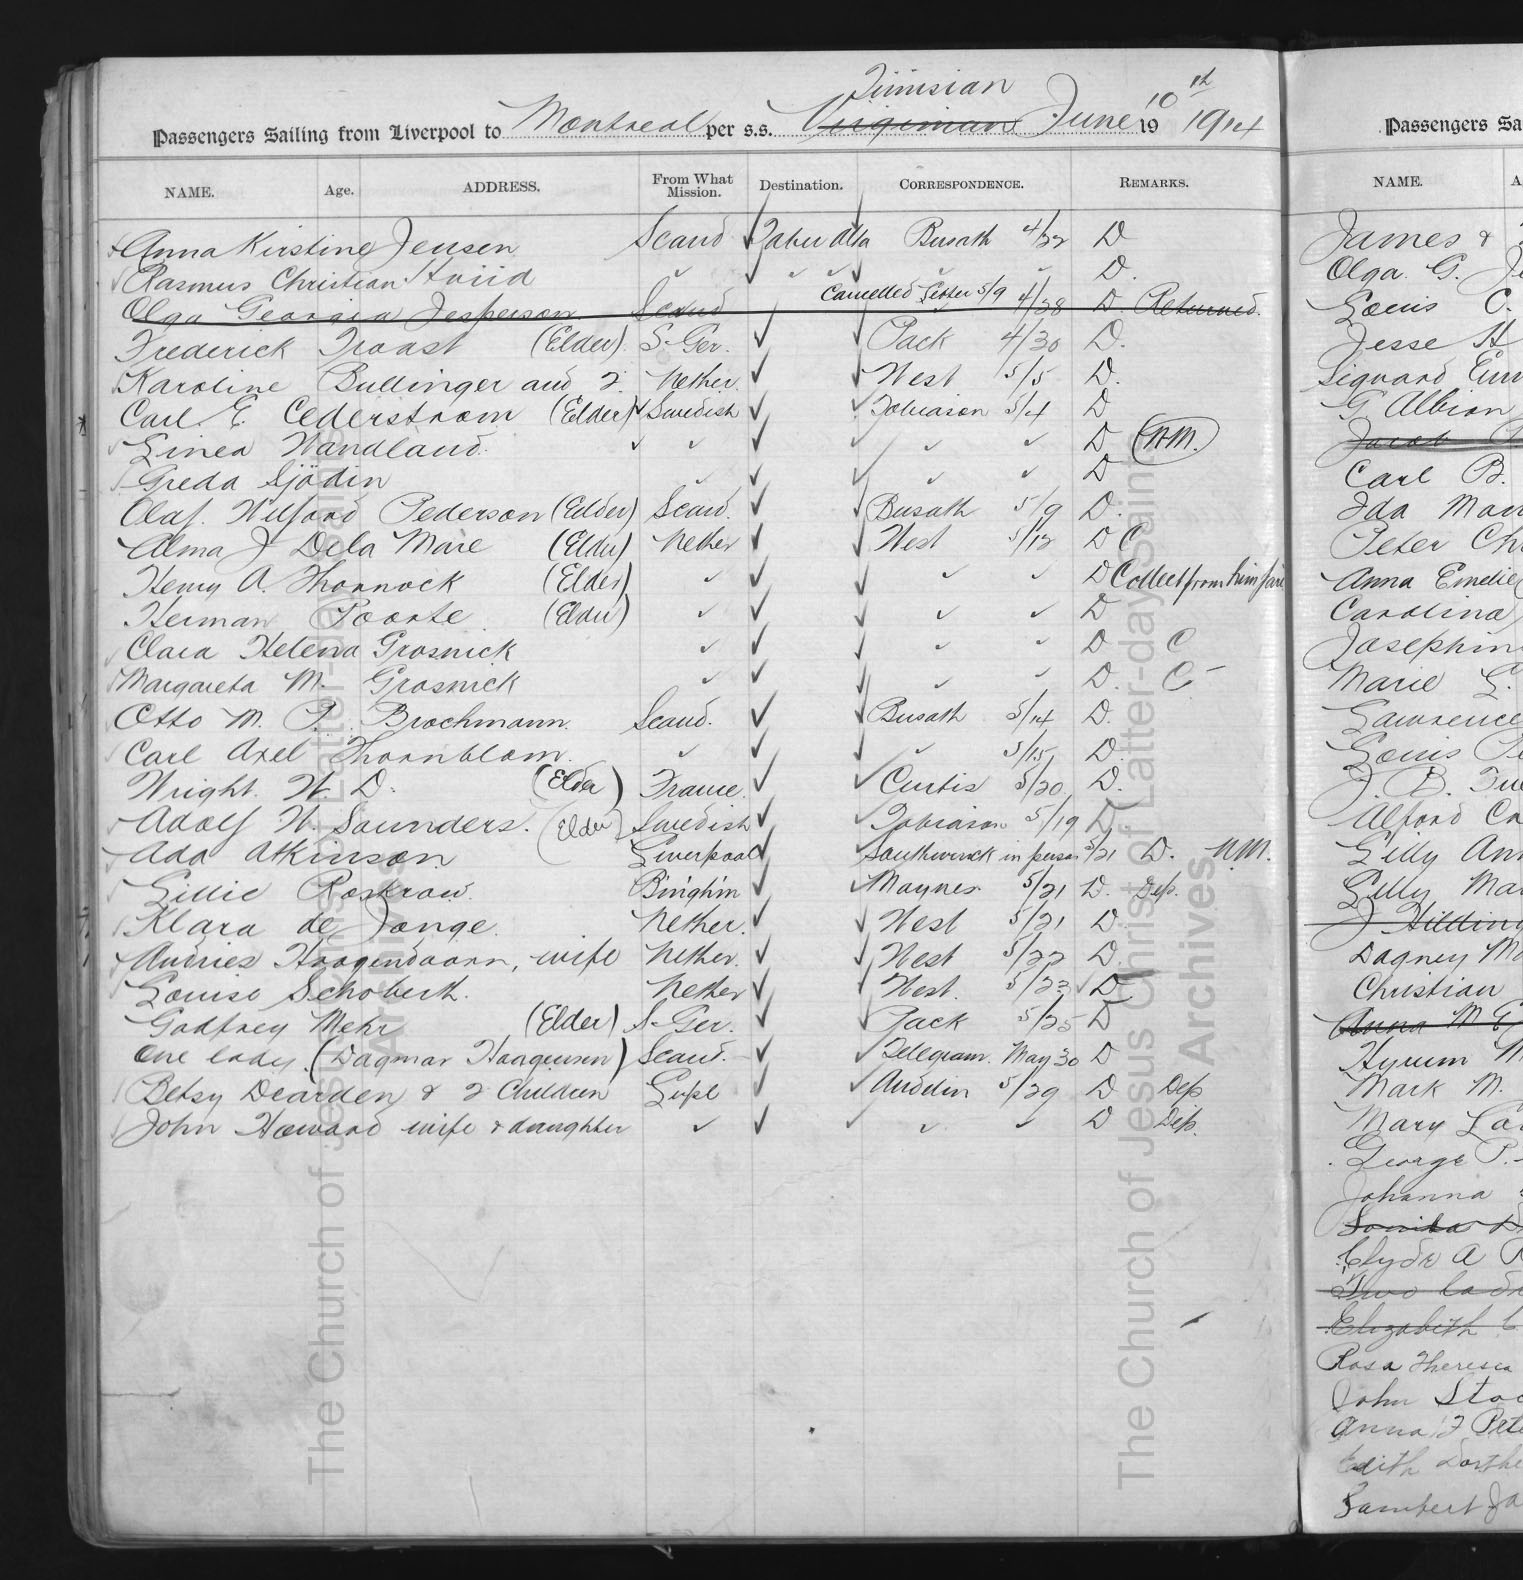 Tunisian 10th
Passengers Sailing from Liverpool to Montreal per s.s. Virginian June 19 1914
NAME. Age. ADDRESS. From What Mission. Destination. CORRESPONDENCE. REMARKS.
Anna Kirstine Jensen Scand Taber Alta Busath 4/22 D
Rasmus Christian Hviid D.
Olga Georgia Jesperson Scand Cancelled letter 5/9 4/28 D. Returned.
Frederick Troast (Elder) S. Ger. Pack 4/30 D.
Karoline Bullinger and 2. Nether. West 5/5 D.
Carl E. Cederstroom (Elder) Swedish Tobiason 5/4 D
Linea Wandland. D N.M.
Greda Sjödin D
Olaf. Wilford Pederson (Elder) Scand. Busath 5/9 D.
Alma J Dela Mare (Elder) Nether West 5/12 D C
Henry A. Thornock (Elder) D Collect from him fare
Herman Poorte (Elder) D
Clara Helena Grosnick D C
Margareta M. Grosnick D. C
Otto M. P. Brochmann. Scand. Busath 5/14 D.
Carl Axel Thornblom. 5/15 D.
Wright. W. D. (Elder) France. Curtis 5/20 D.
Adolf W. Saunders. (Elder) Swedish Tobiason 5/19 D
Ada Atkinson Liverpool Southwick in person 5/21 D. N.M.
Lillie Roskrow. Bingh'm Maynes 5/21 D. Dep.
Klara de Jonge. Nether. West 5/21 D.
Andries Hoogendoorn, wife Nether. West 5/22 D.
Louise Schoberth. Nether West. 5/23 D
Godfrey Mehr (Elder) S. Ger. Pack 5/25 D
One lady (Dagmar Haagensen) Scand. Telegram. May 30 D
Betsy Dearden & 2 Children Lvpl Audelin 5/29 D Dep
John Howard wife & daughter D Dep.
Passengers Sa
NAME. A
James &
Olga. G. Je
Louis C.
Jesse H
Sigvard
G. Albion
Jacob
Carl B.
Ida
Peter Ch
Anna Emelie
Carolina
Josephin
Marie
Lawrence
Louis
J. B.
Alford Ca
Lilly Ann
Lilly Mar
J Hilding
Dagney Ma
Christian
Anna M
Hyrum M
Mark M.
Mary
George P.
Johanna
Clyde A
Two lad
Elizabeth C
Rosa Theresa
John Sto
Anna J Pete
Edith Dorthe
Lambert Ja
The Church of Jesus Christ of Latter-day Saints
Archives
The Church of Jesus Christ of Latter-day Saints
Archives